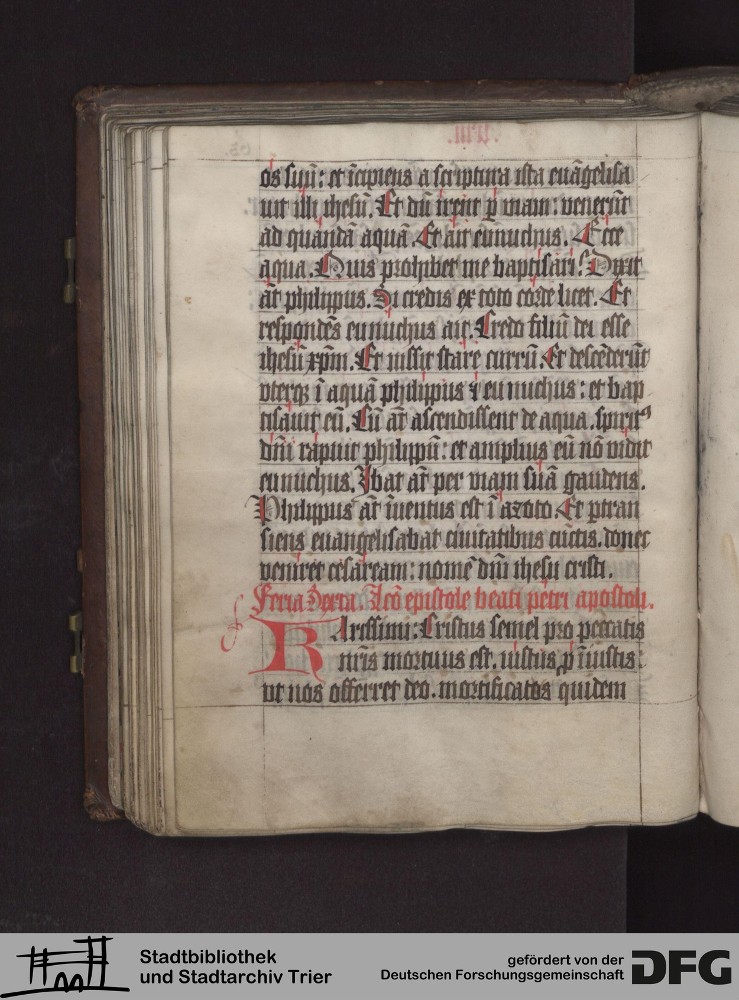 os suū: et īcipiens a scriptura ista euāgelisa
uit illi ihesū. Et dū irent ꝑ uiam: venerūt
ad quandā aquā. Et ait eunuchus. Ecce
aqua. Quis prohibet me baptisari? Dixit
āt philippus. Si credis ex toto corde licet. Et
respondēs eunuchus ait. Credo filiū dei esse
ihesū xp̄m. Et iussit stare currū. Et descēderūt
vterqꝫ ī aquā philippus ⁊ eunuchus: et bap
tisauit eū. Cū āt ascendissent de aqua. spiritꝰ
dn̄i rapuit philippū: et amplius eū nō vidit
eunuchus. Ibat āt per uiam suā gaudens.
Philippus āt īuentus est ī azoto. Et ꝑtran
siens euangelisabat ciuitatibus cūctis. donec
veniret cesaream: nomē dn̄i ihesu cristi.
Feria Sexta. Leō epistole beati petri apostoli.
KArissimi: Cristus semel pro peccatis
nr̄is mortuus est. iustus ꝓ īiustis:
ut nos offerret deo. mortificatos quidem
Stadtbibliothek
und Stadtarchiv Trier
gefördert von der
Deutschen Forschungsgemeinschaft
DFG